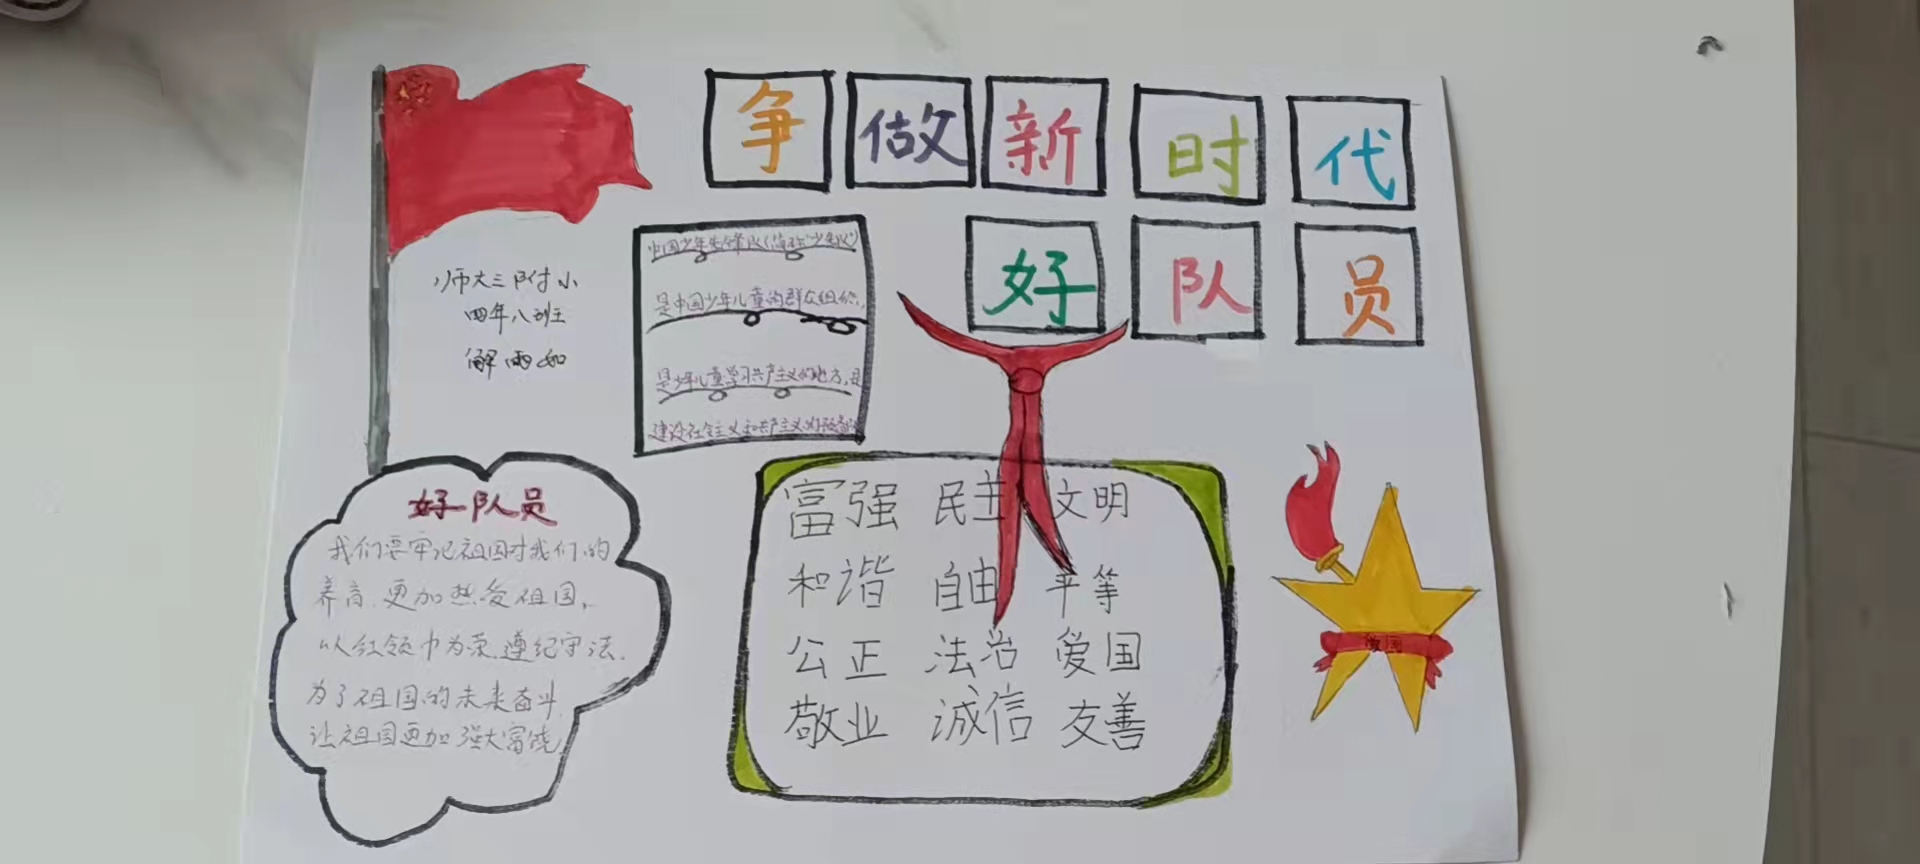 争做新时代
好队员
师大三附小
四年八班
解雨如
中国少年先锋队(简称"少先队")
是中国少年儿童的群众组织,
是少年儿童学习共产主义的地方,是
建设社会主义和共产主义的预备
好队员
我们要牢记祖国对我们的
养育,更加热爱祖国,
以红领巾为荣,遵纪守法,
为了祖国的未来奋斗,
让祖国更加强大富饶
富强 民主 文明
和谐 自由 平等
公正 法治 爱国
敬业 诚信 友善